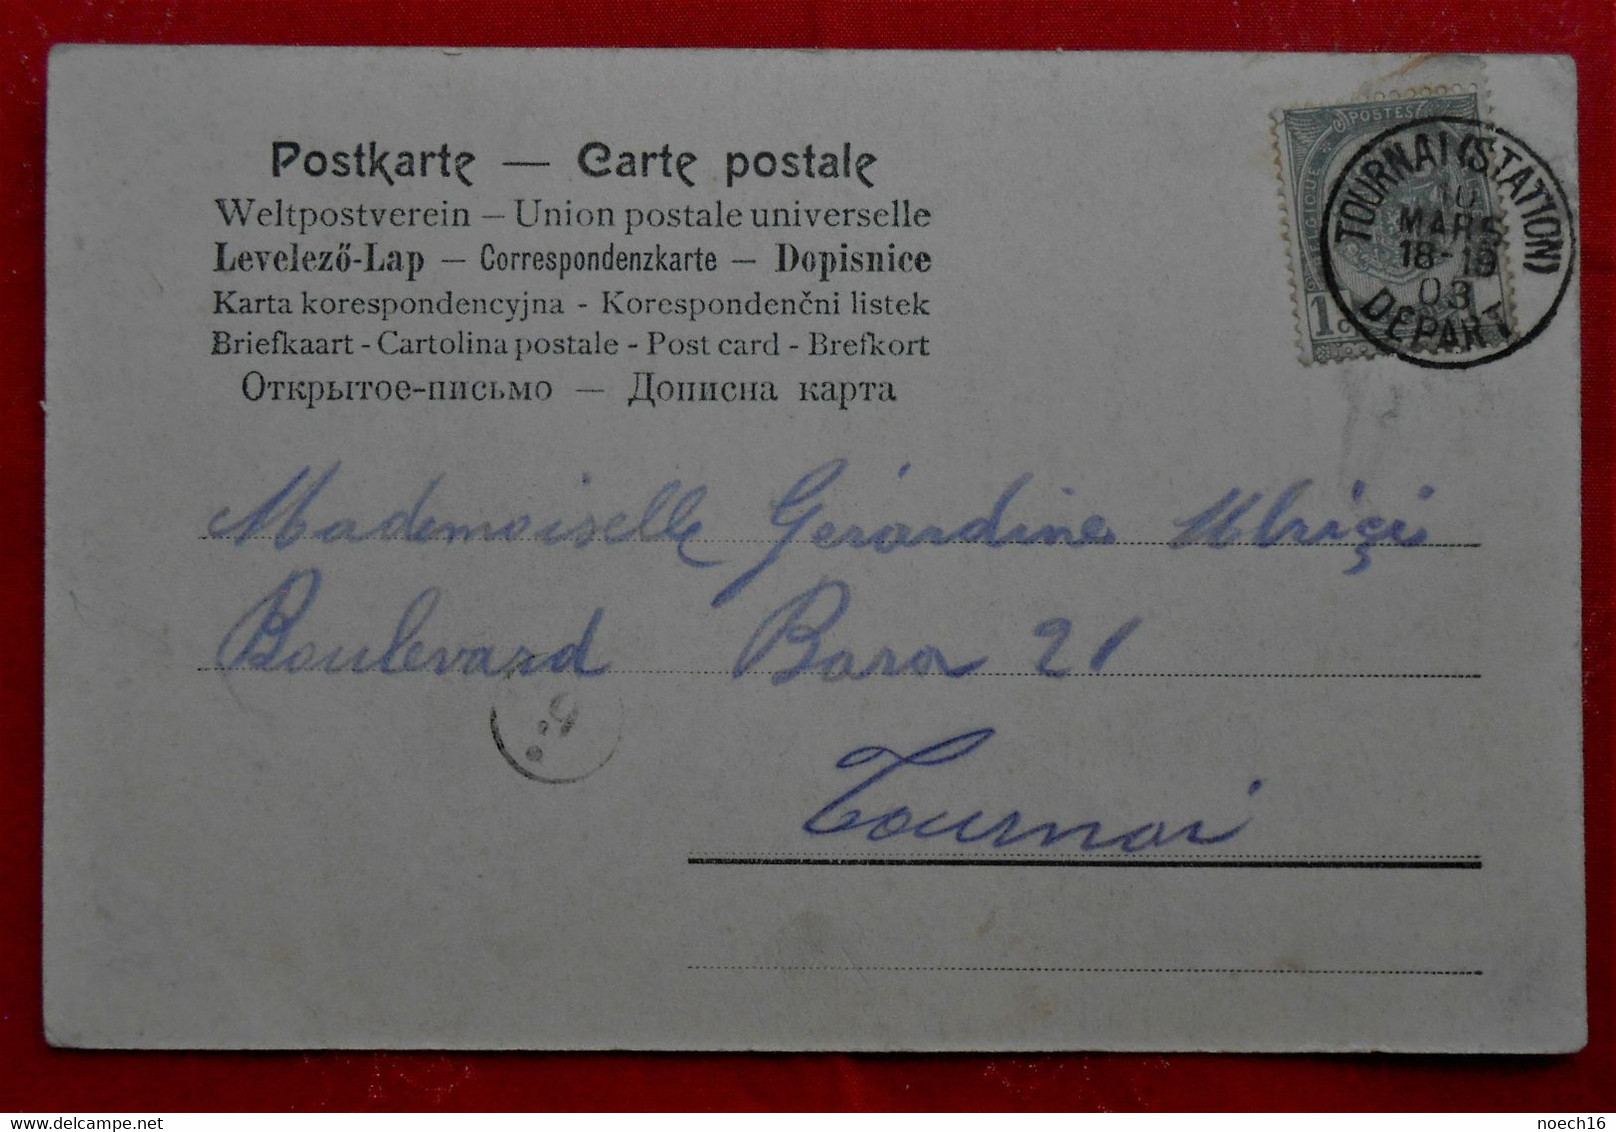 Postkarte — Carte postale
Weltpostverein – Union postale universelle
Levelező-Lap – Correspondenzkarte – Dopisnice
Karta korespondencyjna - Korespondenčni listek
Briefkaart - Cartolina postale - Post card - Brefkort
Открытое-письмо — Дописна карта
POSTES
BELGIQUE
1 C
TOURNAI (STATION)
10
MARS
18-19
03
DEPART
Mademoiselle Gerardine
Boulevard Bara 21
Tournai
noech16